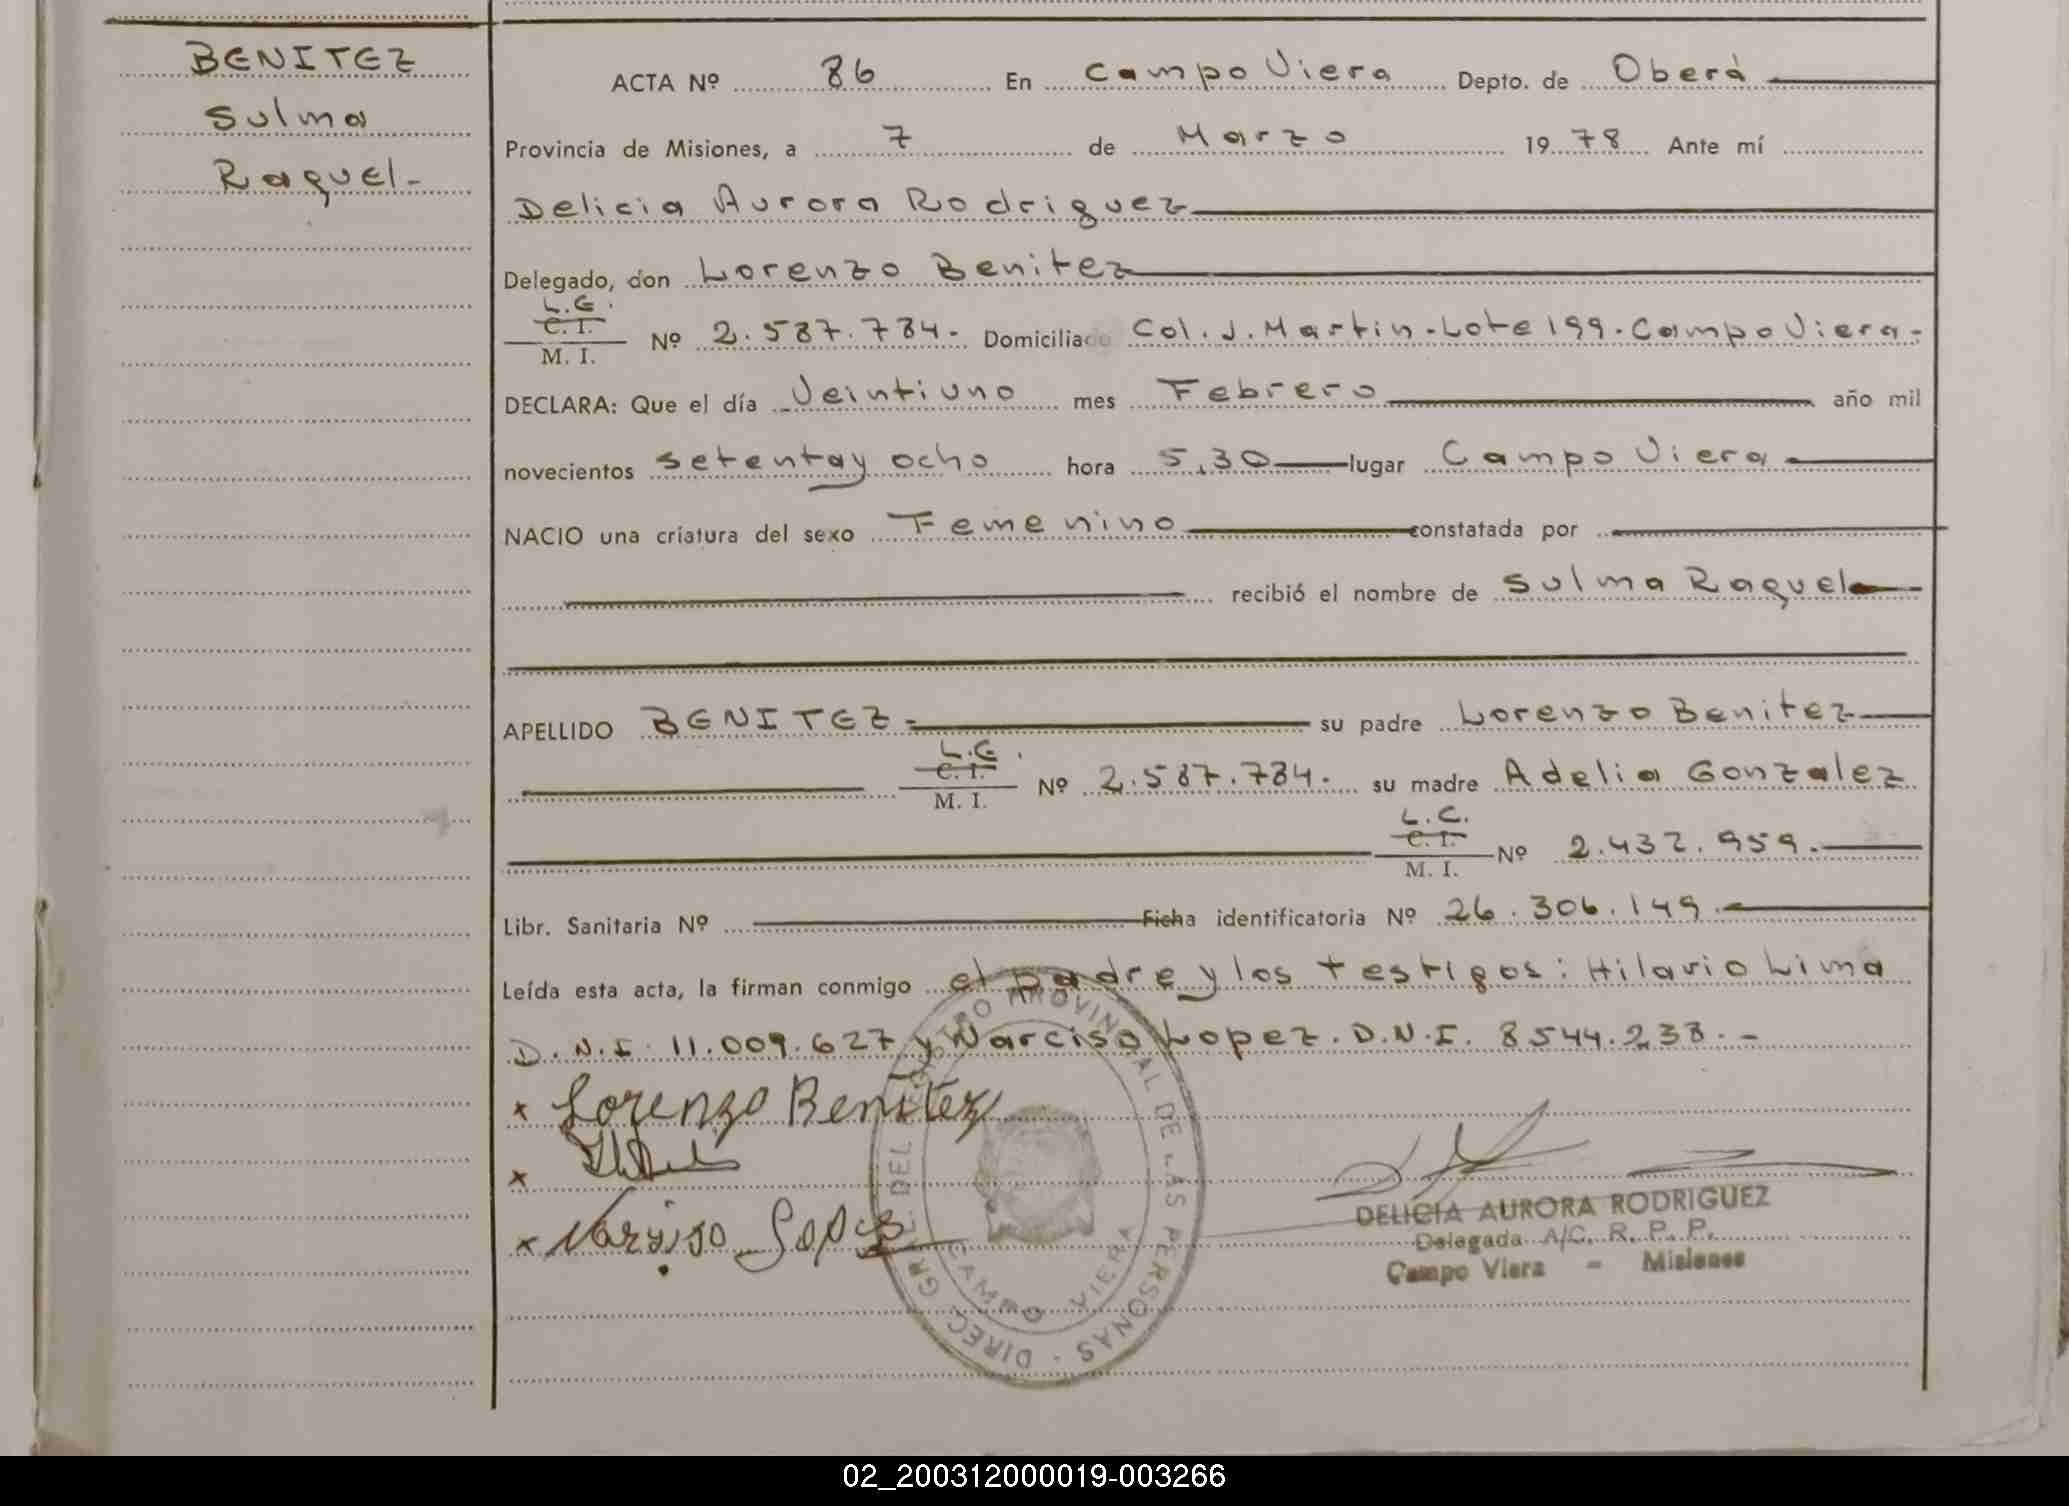 BENITEZ
Sulma
Raquel-
ACTA Nº 86 En Campo Viera Depto. de Oberá
Provincia de Misiones, a 7 de Marzo 19 78 Ante mí
Delicia Aurora Rodriguez
Delegado, don Lorenzo Benitez
L.E.
C. I.
M. I. Nº 2.587.784.- Domiciliado Col. J. Martin-Lote 199-Campo Viera-
DECLARA: Que el día Veintiuno mes Febrero año mil
novecientos setenta y ocho hora 5,30 lugar Campo Viera
NACIO una criatura del sexo Femenino constatada por
recibió el nombre de Sulma Raquel
APELLIDO BENITEZ su padre Lorenzo Benitez
L.E.
C. I.
M. I. Nº 2.587.784. su madre Adelia Gonzalez
L.C.
C. I.
M. I. Nº 2.432.959.
Libr. Sanitaria Nº Ficha identificatoria Nº 26.306.149.
Leída esta acta, la firman conmigo el padre y los testigos: Hilario Lima
D.N.I. 11.009.627 y Narciso Lopez. D.N.I. 8544.238.-
x Lorenzo Benitez
x
x Narciso Lopez
DIREC. GRL. DEL REGISTRO PROVINCIAL DE LAS PERSONAS
CAMPO VIERA
DELICIA AURORA RODRIGUEZ
Delegada A/C. R. P. P.
Campo Viera - Misiones
02_200312000019-003266